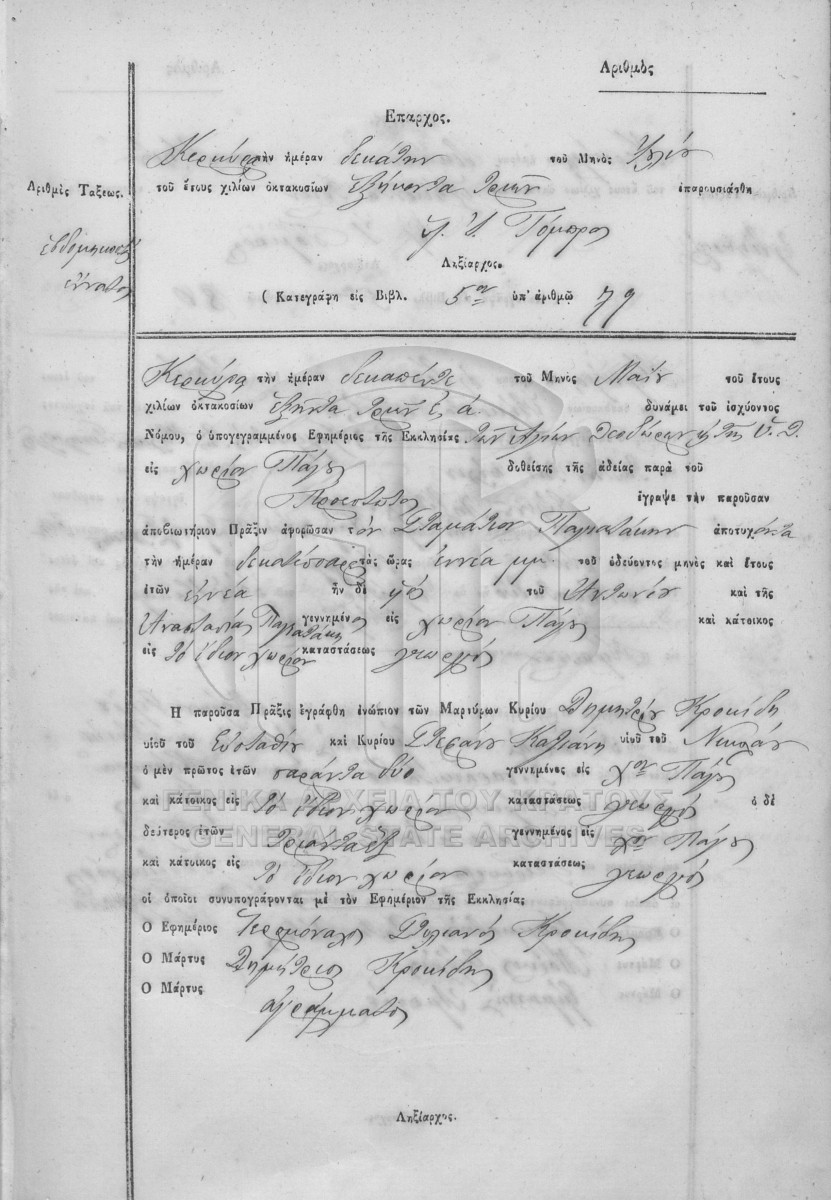 Αριθμὸς
Επαρχος.
Κερκύρᾳ τὴν ἡμέραν δεκάτην τοῦ Μηνὸς Ἰουλίου
Αριθμὸς Ταξεως.
τοῦ ἔτους χιλίων ὀκτακοσίων ἑξήκοντα τριῶν ἐπαρουσιάσθη
ἑβδομηκοστὸς
ἔννατος
Ληξίαρχος.
( Κατεγράφη εἰς Βιβλ. 5ον ὑπ' ἀριθμῷ 79
Κερκύρᾳ τὴν ἡμέραν δεκαπέντε τοῦ Μηνὸς Μαΐου τοῦ ἔτους
χιλίων ὀκτακοσίων ἑξῆντα τριῶν Ε. ἀ. δυνάμει τοῦ ἰσχύοντος
Νόμου, ὁ ὑπογεγραμμένος Ἐφημέριος τῆς Ἐκκλησίας τῶν Ἁγίων Θεοδώρων
εἰς χωρίον Πάγοι δοθείσης τῆς ἀδείας παρὰ τοῦ
Προεστῶτος ἔγραψε τὴν παροῦσαν
ἀποβιωτήριον Πρᾶξιν ἀφορῶσαν τὸν Σταμάτιον Παγιατάκην ἀποτυχόντα
τὴν ἡμέραν δεκατέσσαρες τὰς ὥρας ἐννέα μμ. τοῦ ὁδεύοντος μηνὸς καὶ ἔτους
ἐτῶν ἐννέα ἦν δὲ υἱὸς τοῦ Ἀντωνίου καὶ τῆς
Ἀναστασίας Παγιατάκη γεννημένος εἰς χωρίον Πάγοι καὶ κάτοικος
εἰς τὸ ἴδιον χωρίον καταστάσεως γεωργός
Η παροῦσα Πρᾶξις ἐγράφθη ἐνώπιον τῶν Μαρτύρων Κυρίου Δημητρίου Κροκίδη
υἱοῦ τοῦ Εὐσταθίου καὶ Κυρίου Στεφάνου υἱοῦ τοῦ Νικολάου
ὁ μὲν πρῶτος ἐτῶν σαράντα δύο γεννημένος εἰς χον Πάγοι
καὶ κάτοικος εἰς τὸ ἴδιον χωρίον καταστάσεως γεωργός ὁ δὲ
δεύτερος ἐτῶν τριάντα ἕξ γεννημένος εἰς χον Πάγοι
καὶ κάτοικος εἰς τὸ ἴδιον χωρίον καταστάσεως γεωργός
οἱ ὁποῖοι συνυπογράφονται μὲ τὸν Ἐφημέριον τῆς Ἐκκλησίας
Ο Ἐφημέριος Ἱερομόναχος Στυλιανός Κροκίδης
Ο Μάρτυς Δημήτριος Κροκίδης
Ο Μάρτυς ἀγράμματος
Ληξίαρχος.
ΓΕΝΙΚΑ ΑΡΧΕΙΑ ΤΟΥ ΚΡΑΤΟΥΣ
GENERAL STATE ARCHIVES